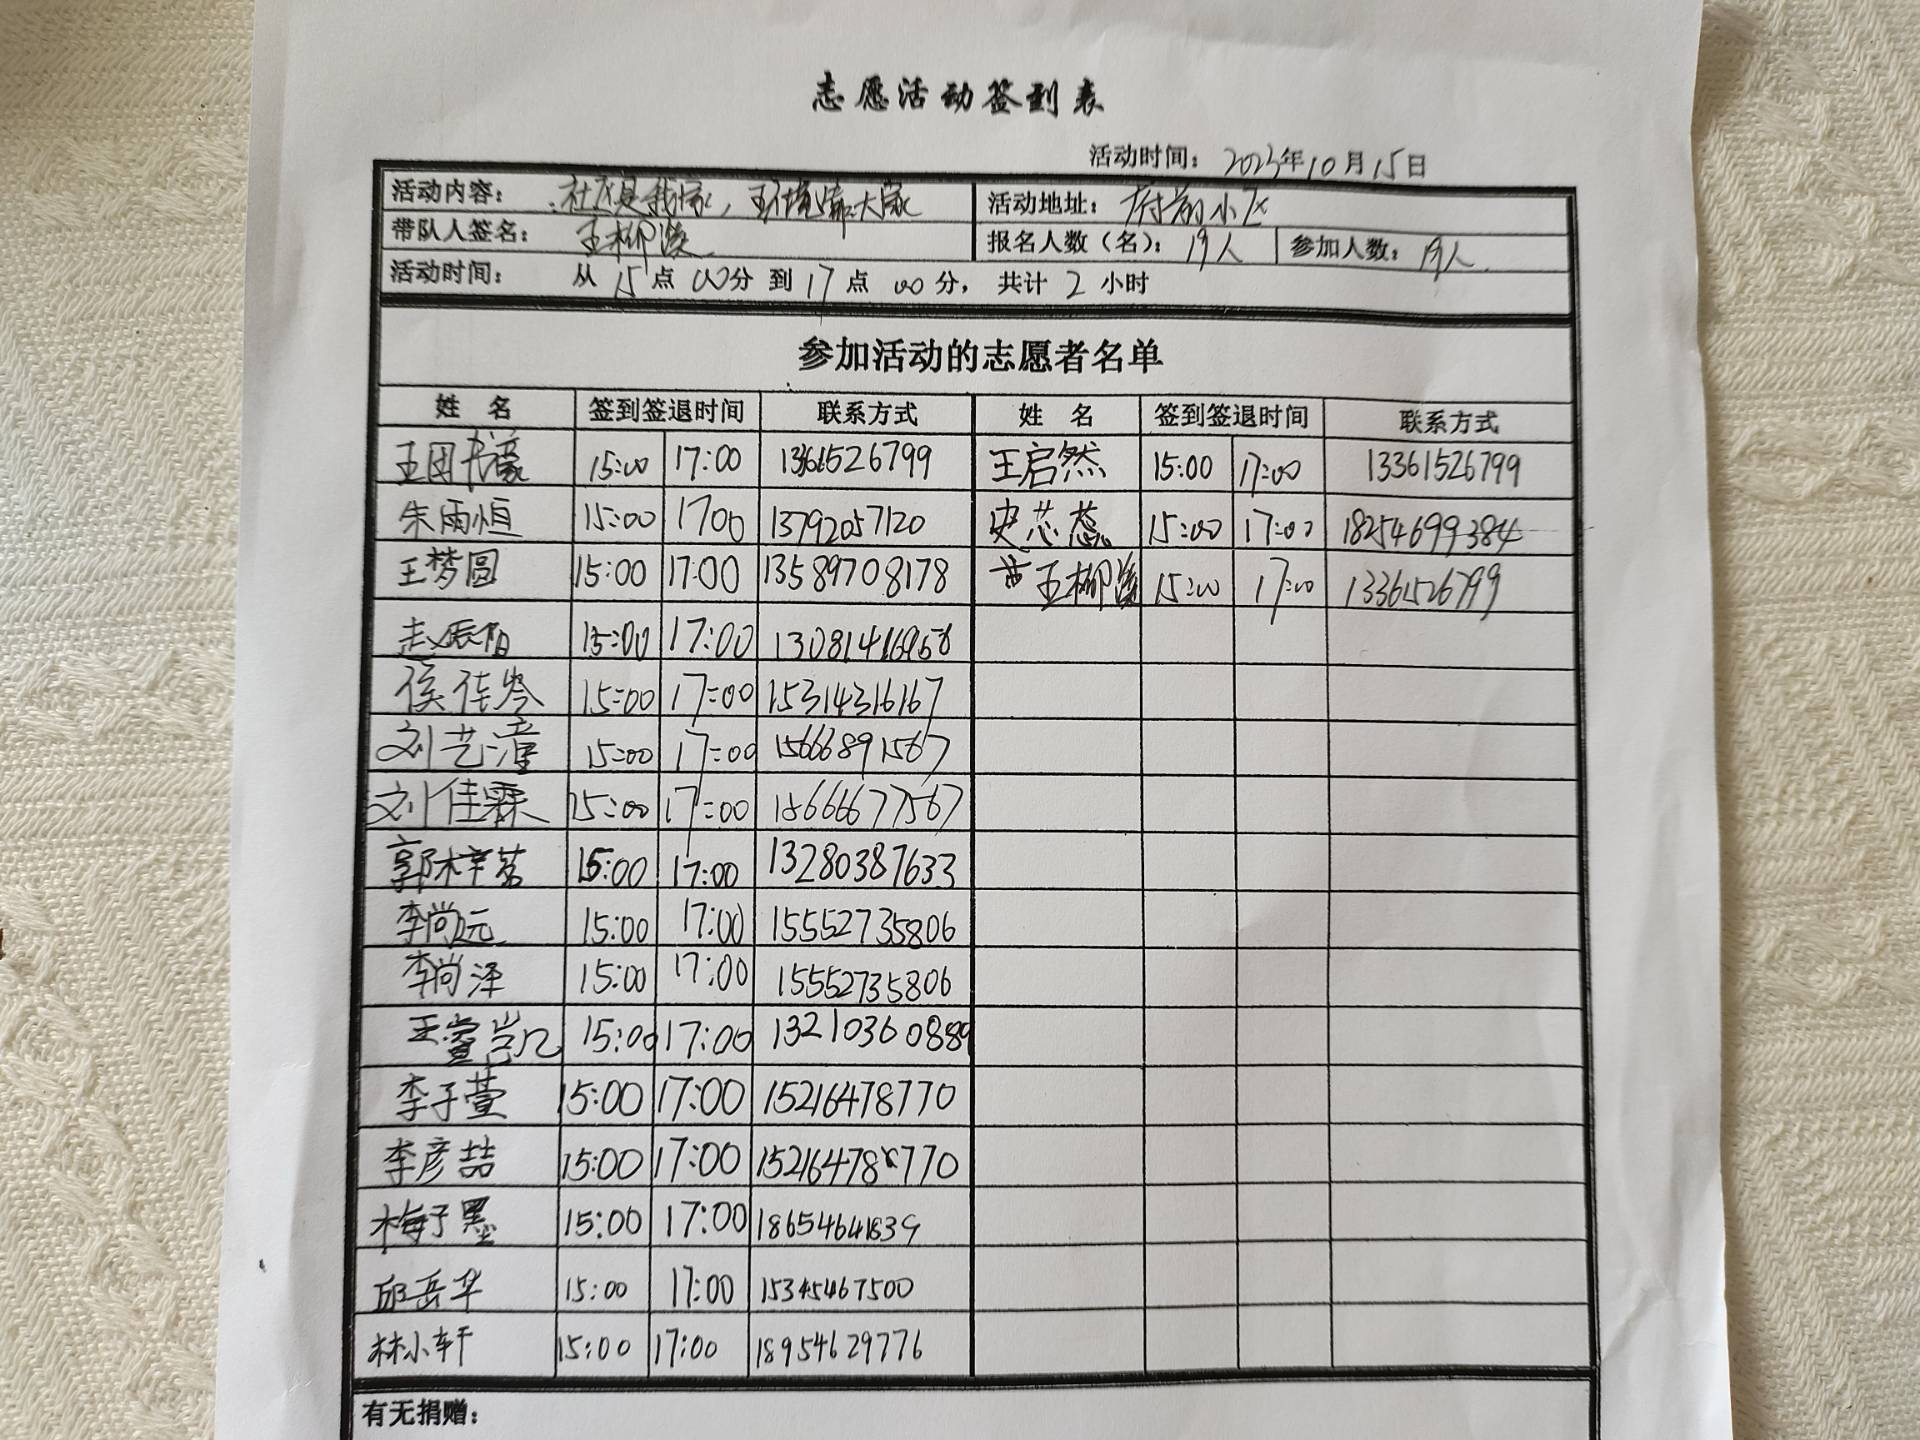 志愿活动签到表
活动时间：2023年10月15日
活动内容：社区是我家，环境靠大家 活动地址：府前小区
带队人签名：王柳 报名人数（名）：19人 参加人数：19人
活动时间：从15点00分到17点00分，共计2小时
参加活动的志愿者名单
姓 名 签到签退时间 联系方式 姓 名 签到签退时间 联系方式
王 15:00 17:00 13361526799 王启然 15:00 17:00 13361526799
朱雨恒 15:00 1700 13792057120 史芯蕊 15:00 17:00 18254699384
王梦圆 15:00 17:00 13589708178 王柳 15:00 17:00 13361526799
赵辰阳 15:00 17:00
侯佳岑 15:00 17:00 15314316167
刘艺潼 15:00 17:00 15666891567
刘佳霖 15:00 17:00 18666677567
郭梓茗 15:00 17:00 13280387633
李尚远 15:00 17:00 15552735806
李尚泽 15:00 17:00 15552735806
王 15:00 17:00 13210360889
李子萱 15:00 17:00 15216478770
李彦喆 15:00 17:00 15216478770
梅子墨 15:00 17:00 18654641839
邱岳华 15:00 17:00 15345467500
林小轩 15:00 17:00 18954629776
有无捐赠：